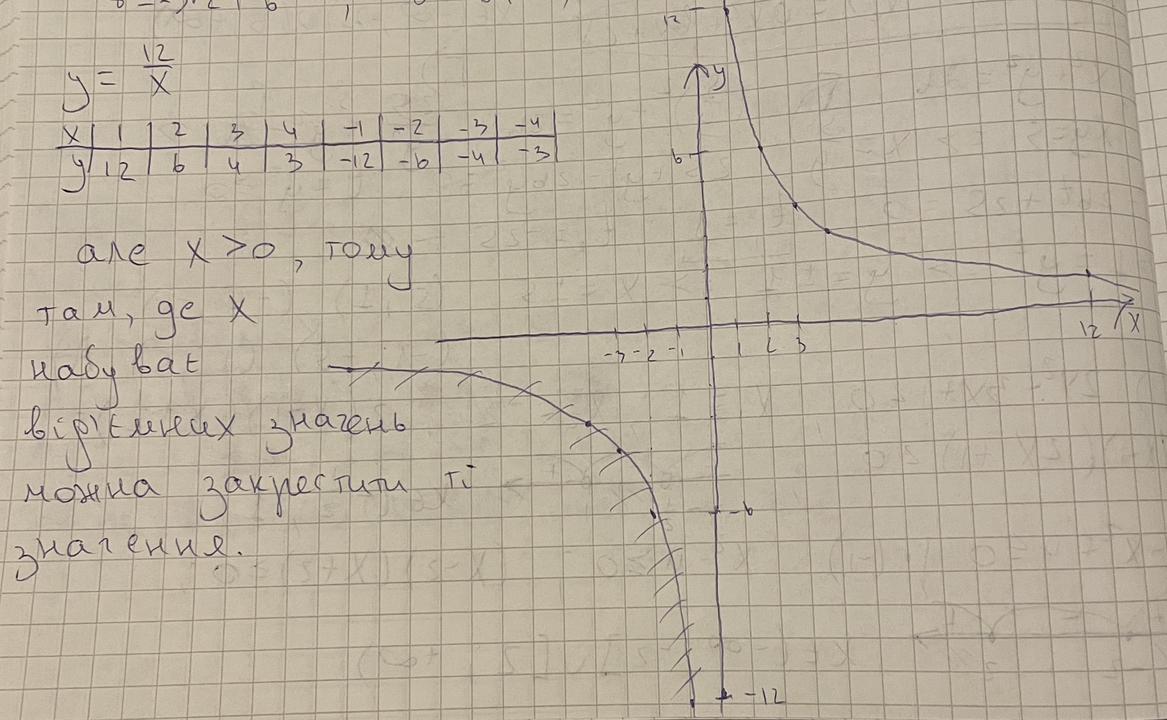 y = 12/x
x | 1 | 2 | 3 | 4 | -1 | -2 | -3 | -4
y | 12 | 6 | 4 | 3 | -12 | -6 | -4 | -3
але x > 0, тому
там, де x
набуває
від'ємних значень
можна закрестити ті
значення.
12
y
6
-3 -2 -1 1 2 3 12 x
-6
-12